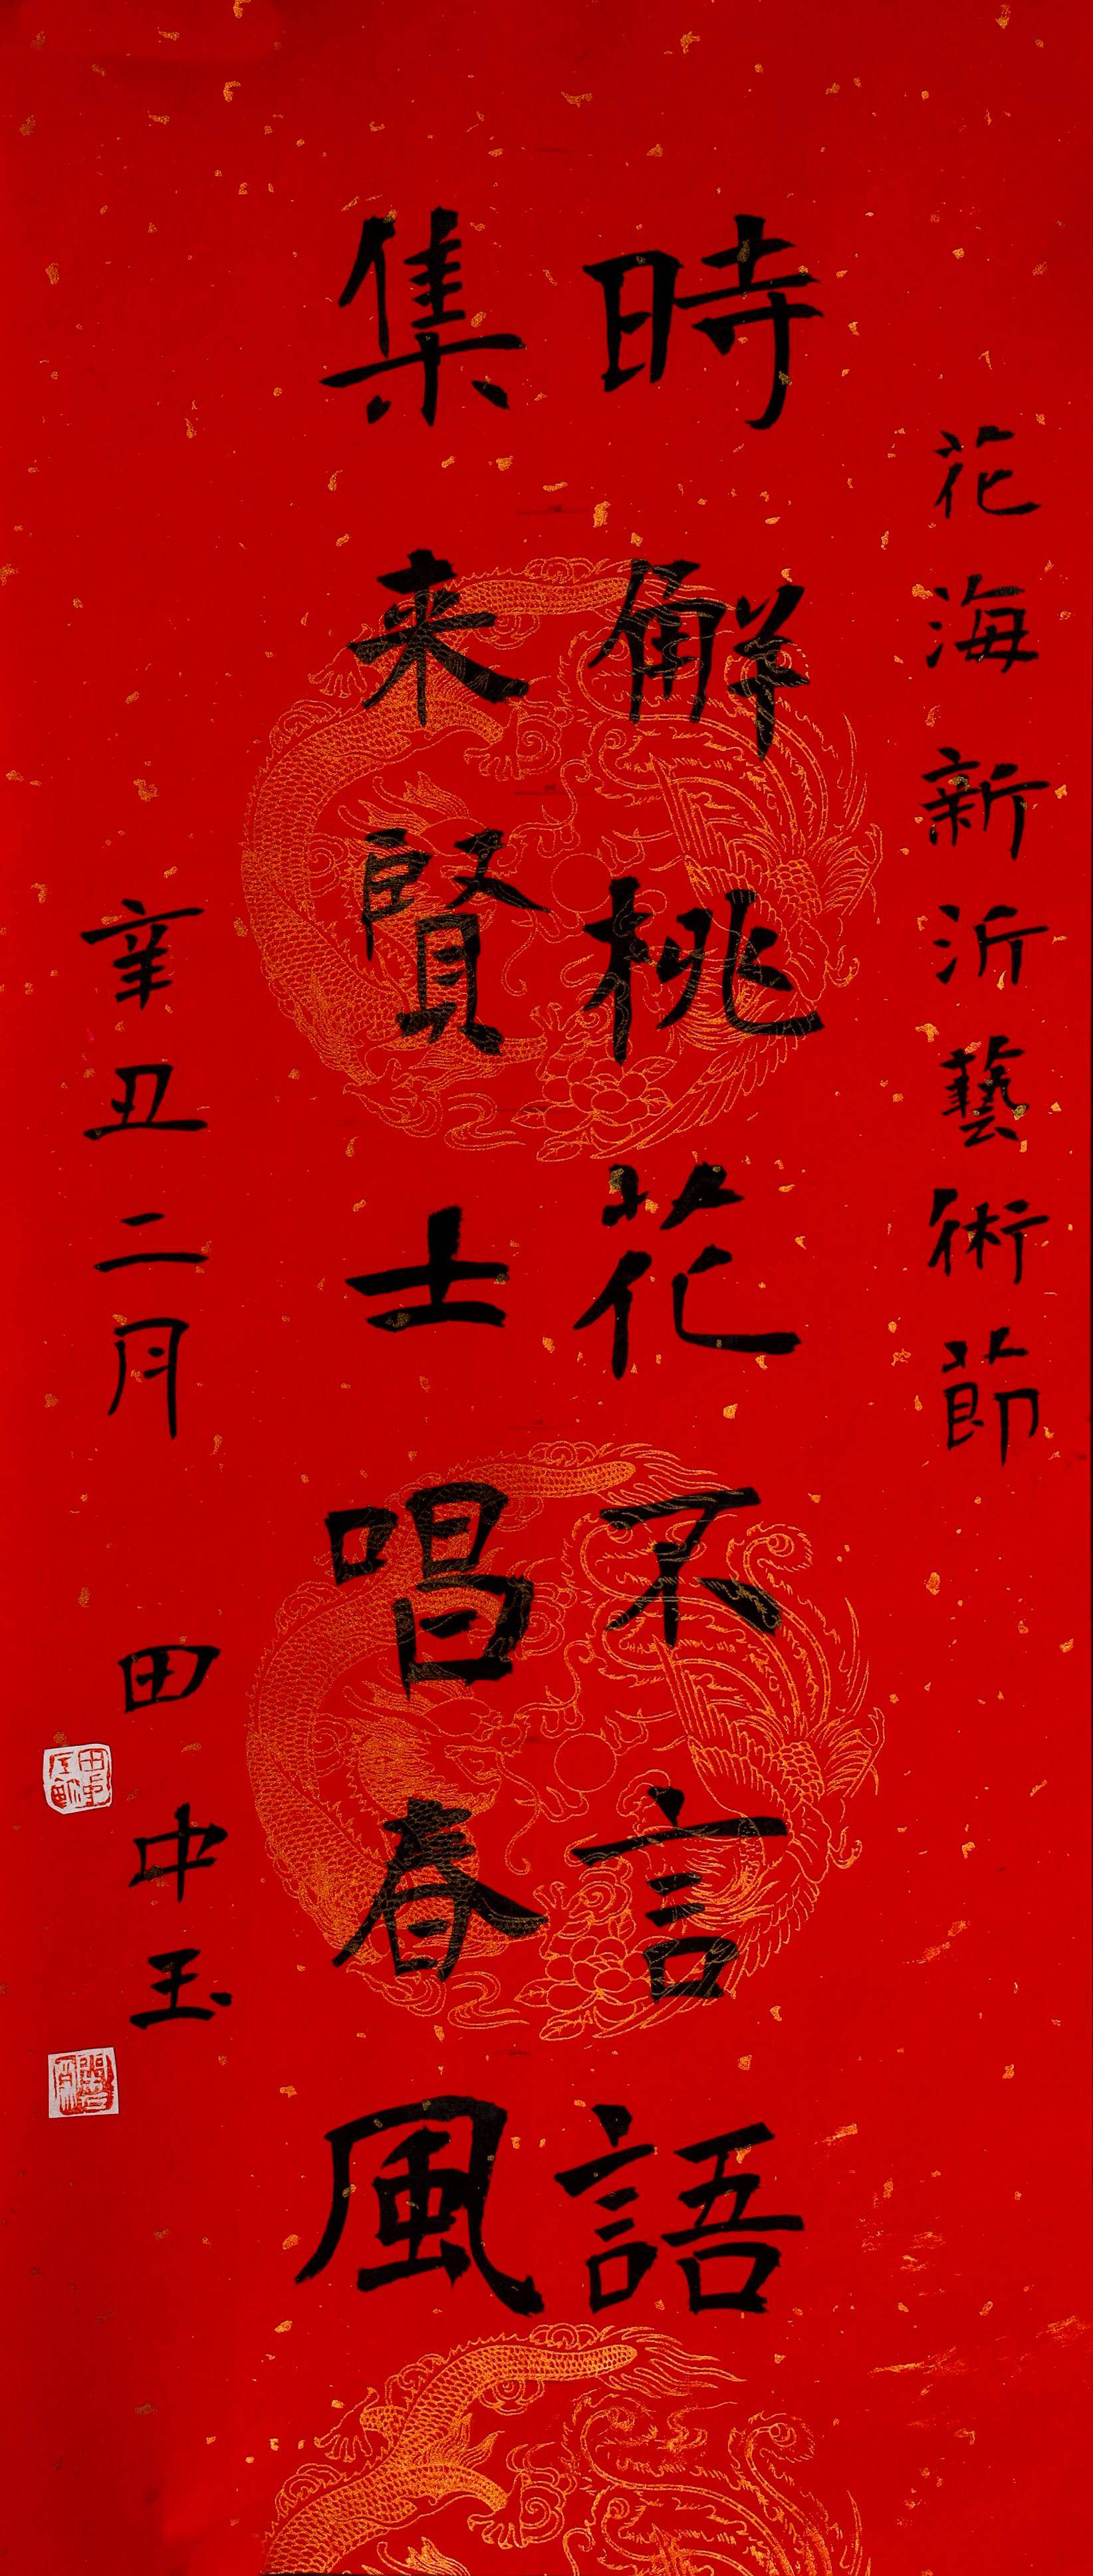 花海新沂藝術節
時解桃花不言語
集来賢士唱春風
辛丑二月 田中玉